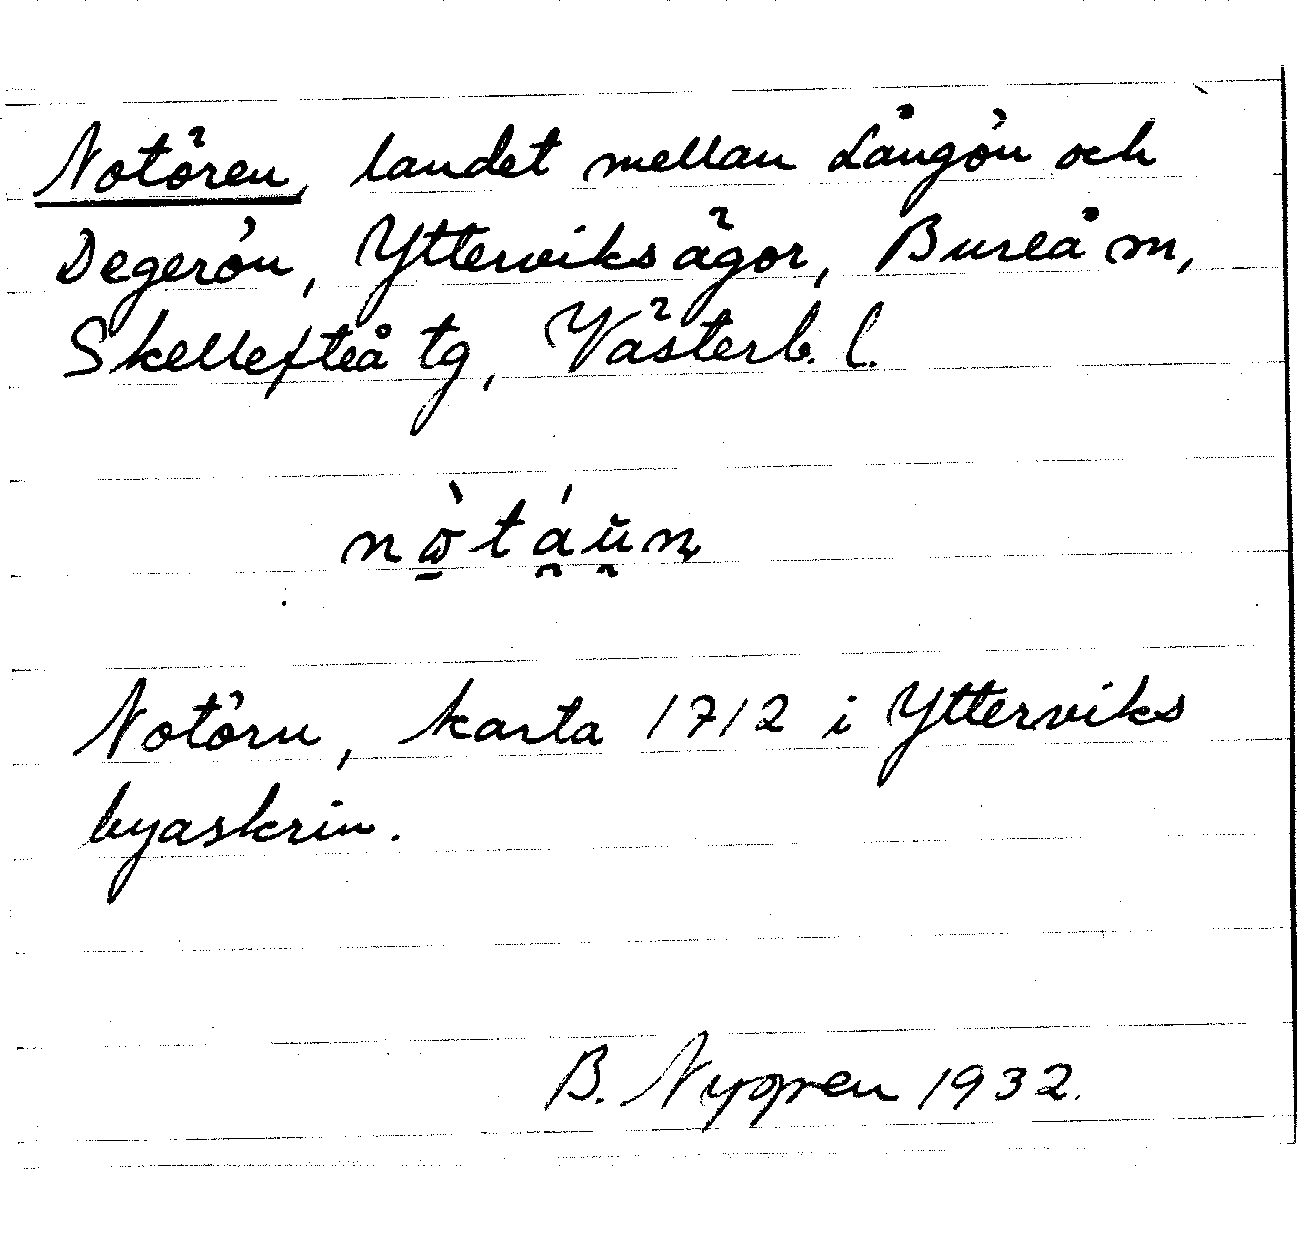 Notören, landet mellan Långön och
Degerön, Ytterviks ägor, Bureå m,
Skellefteå tg, Västerb. l.
Notörn, karta 1712 i Ytterviks
byaskrin.
B. Nygren 1932.